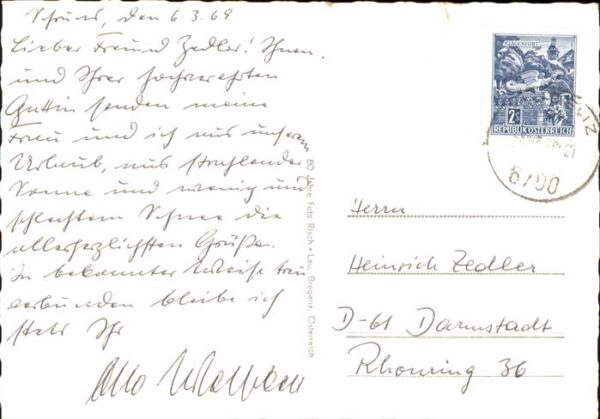 Schruns, den 6.3.69
Lieber Freund Zedler! Ihnen
und Ihrer hochverehrten
Gattin senden meine
Frau und ich aus unserem
Urlaub, aus strahlender
Sonne und wenig und
schlechtem Schnee die
allerherzlichsten Grüße.
In bekannter Weise treu
verbunden bleibe ich
stets Ihr
Otto
80 Jahre Foto Risch-Lau, Bregenz, Österreich
KLAGENFURT
2S
REPUBLIK ÖSTERREICH
6700
Herrn
Heinrich Zedler
D-61 Darmstadt
Rhönring 36